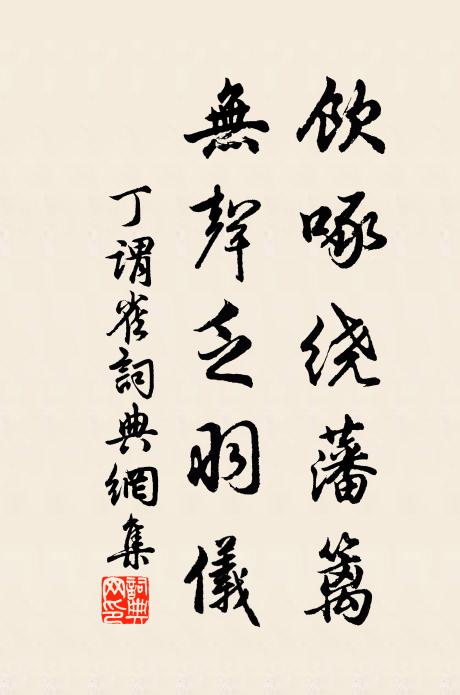 飲啄绕藩籬
無聲乏羽儀
丁謂雀詞典網集
詞典网印